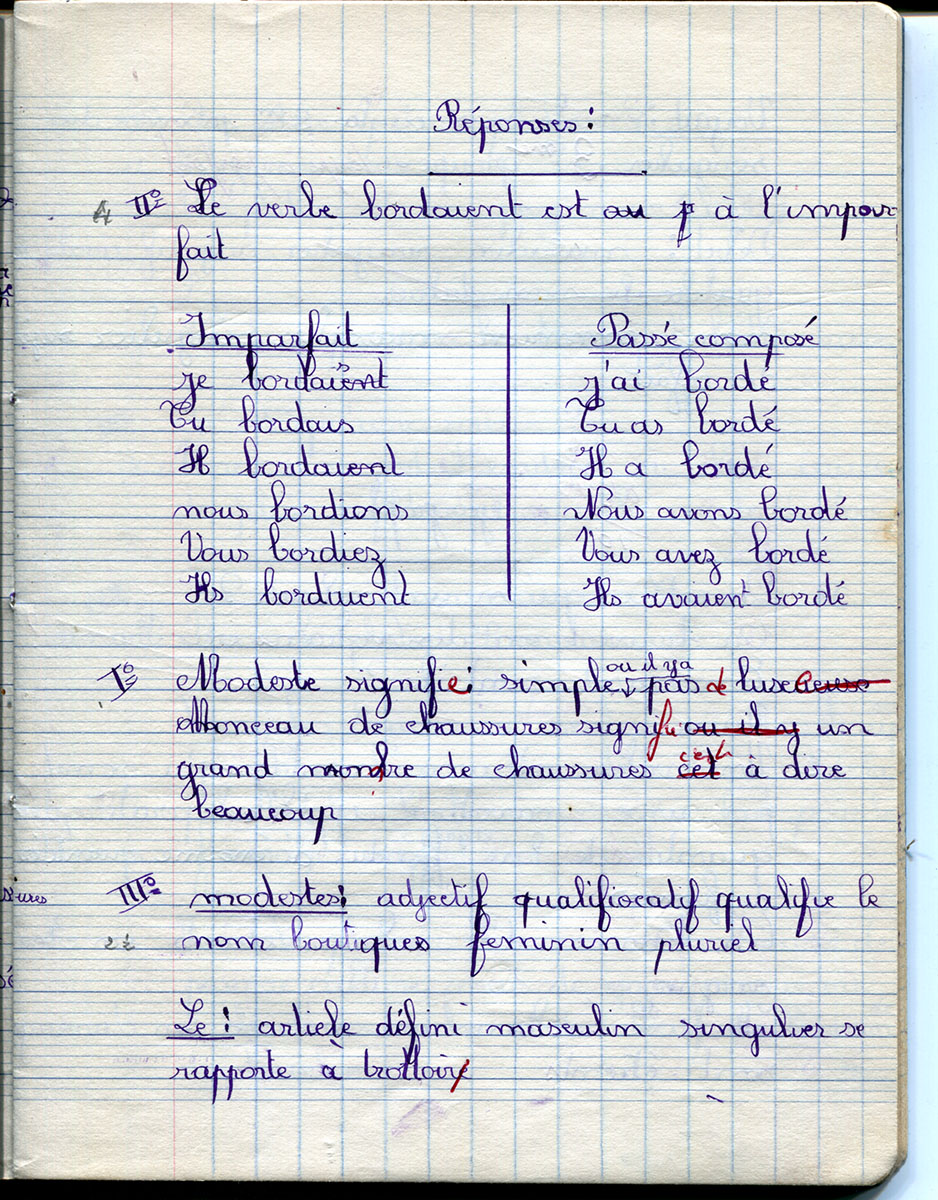 Réponses :
4 II° Le verbe bordaient est au p à l'impar-
fait
Imparfait
je bordaient
Tu bordais
Il bordaient
nous bordions
Vous bordiez
Ils bordaient
Passé composé
j'ai bordé
Tu as bordé
Il a bordé
Nous avons bordé
Vous avez bordé
Ils avaient bordé
I° Modeste signifie : simple, ou il y a pas de luxe
Monceau de chaussures signifie ou il y un
grand nombre de chaussures c'est à dire
beaucoup
III° modestes : adjectif qualifiocatif qualifie le
2½ nom boutiques feminin pluriel
Le : article défini masculin singulier se
rapporte à trottoir